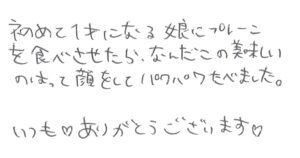 初めて1才になる娘にプレーン
を食べさせたら、なんだこの美味しい
のはって顔をしてパクパクたべました。
いつも♡ありがとうございます♡